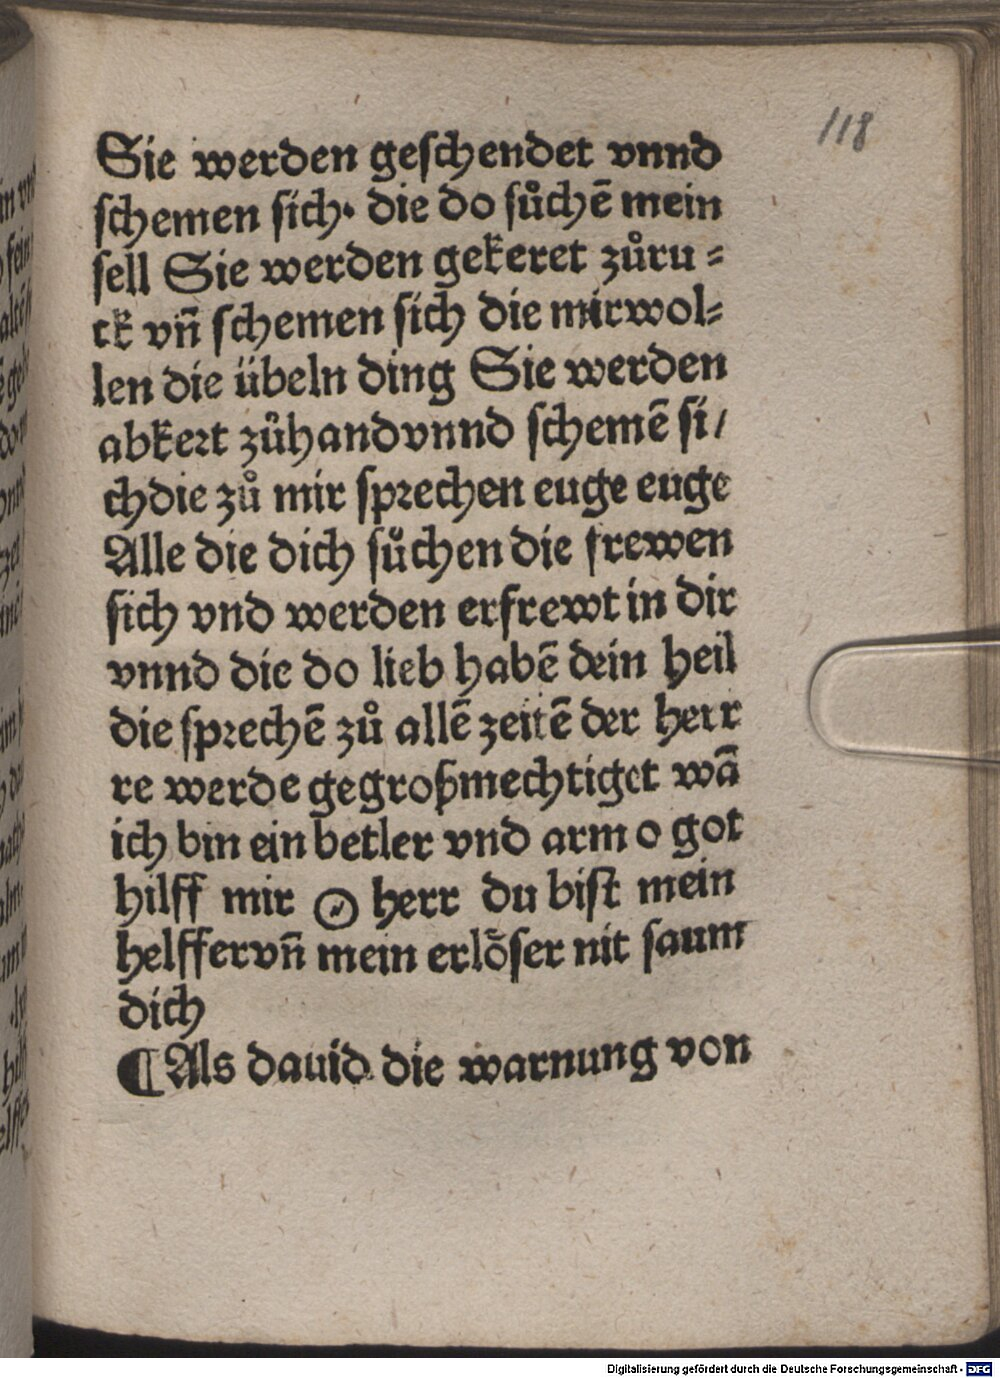 118
Sie werden geschendet vnnd
schemen sich· die do sůchē mein
sell Sie werden gekeret zůru=
ck vñ schemen sich die mir wol=
len die übeln ding Sie werden
abkert zůhand vnnd schemē si/
ch die zů mir sprechen euge euge
Alle die dich sůchen die frewen
sich vnd werden erfrewt in dir
vnnd die do lieb habē dein heil
die sprechē zů allē zeitē der herr
re werde gegroßmechtiget wā
ich bin ein betler vnd arm o got
hilff mir O herr du bist mein
helffer vñ mein erlöser nit saum
dich
¶ Als dauid die warnung von
Digitalisierung gefördert durch die Deutsche Forschungsgemeinschaft - DFG